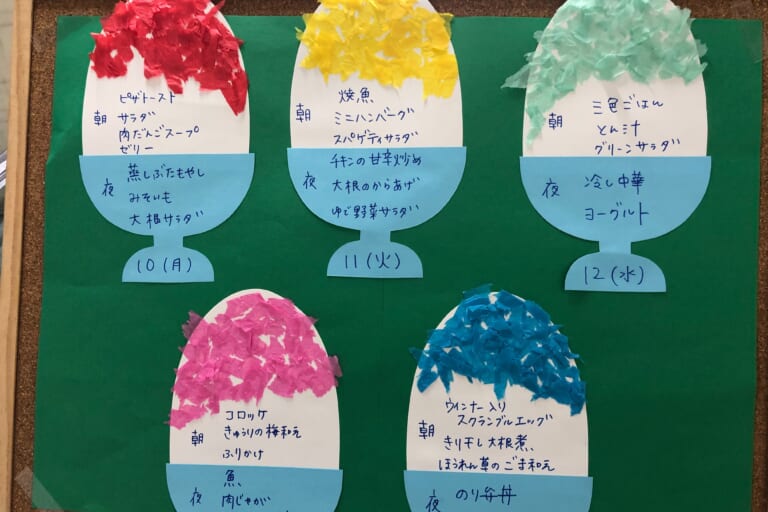 朝
ピザトースト
サラダ
肉だんごスープ
ゼリー
夜
蒸しぶたもやし
みそいも
大根サラダ
10(月)
朝
焼魚
ミニハンバーグ
スパゲティサラダ
夜
チキンの甘辛炒め
大根のからあげ
ゆで野菜サラダ
11(火)
朝
三色ごはん
とん汁
グリーンサラダ
夜
冷し中華
ヨーグルト
12(水)
朝
コロッケ
きゅうりの梅和え
ふりかけ
夜
魚
肉じゃが
朝
ウインナー入り
スクランブルエッグ
きり干し大根煮
ほうれん草のごま和え
夜
のり弁丼